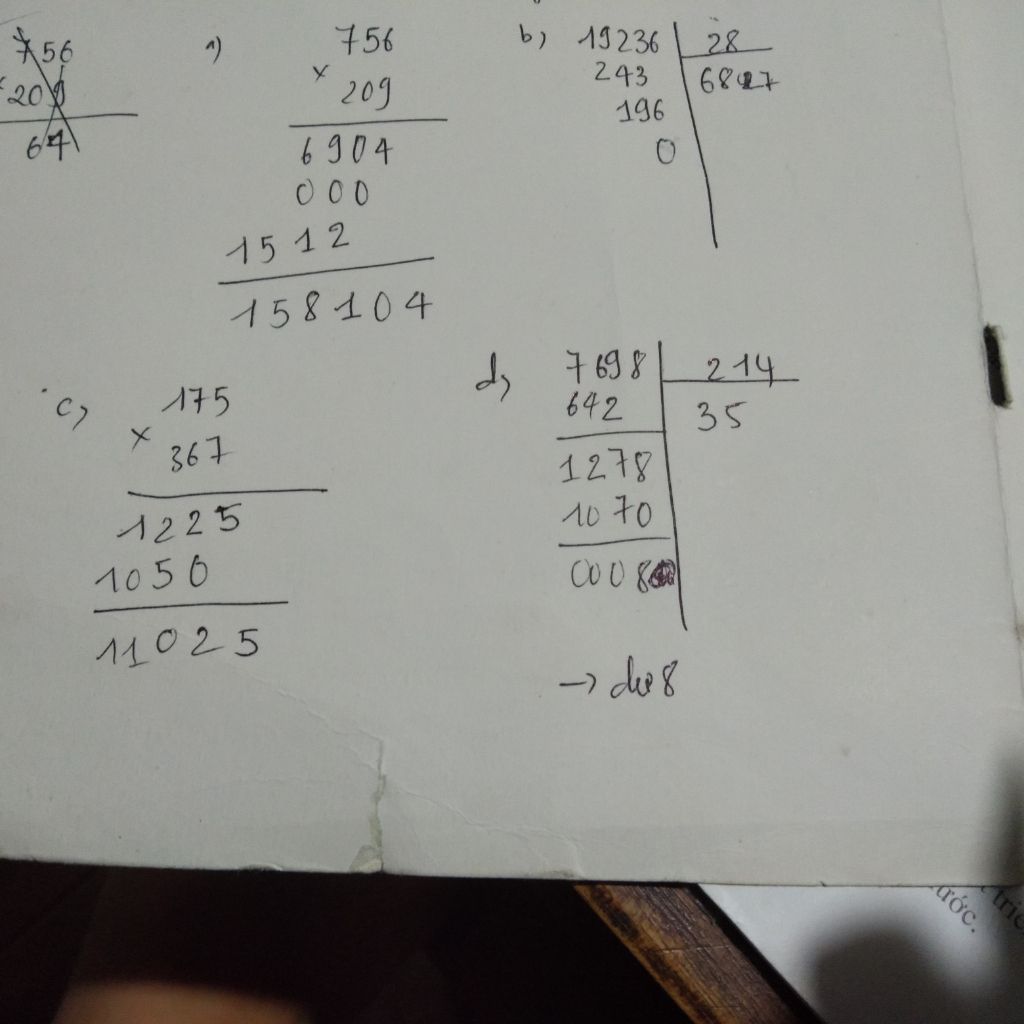 756
× 209
64
a) 756
× 209
6904
000
1512
158104
b) 19236 | 28
243 | 687
196
0
c) 175
× 367
1225
1050
11025
d) 7698 | 214
642 | 35
1278
1070
0008
→ dư 8
ước.